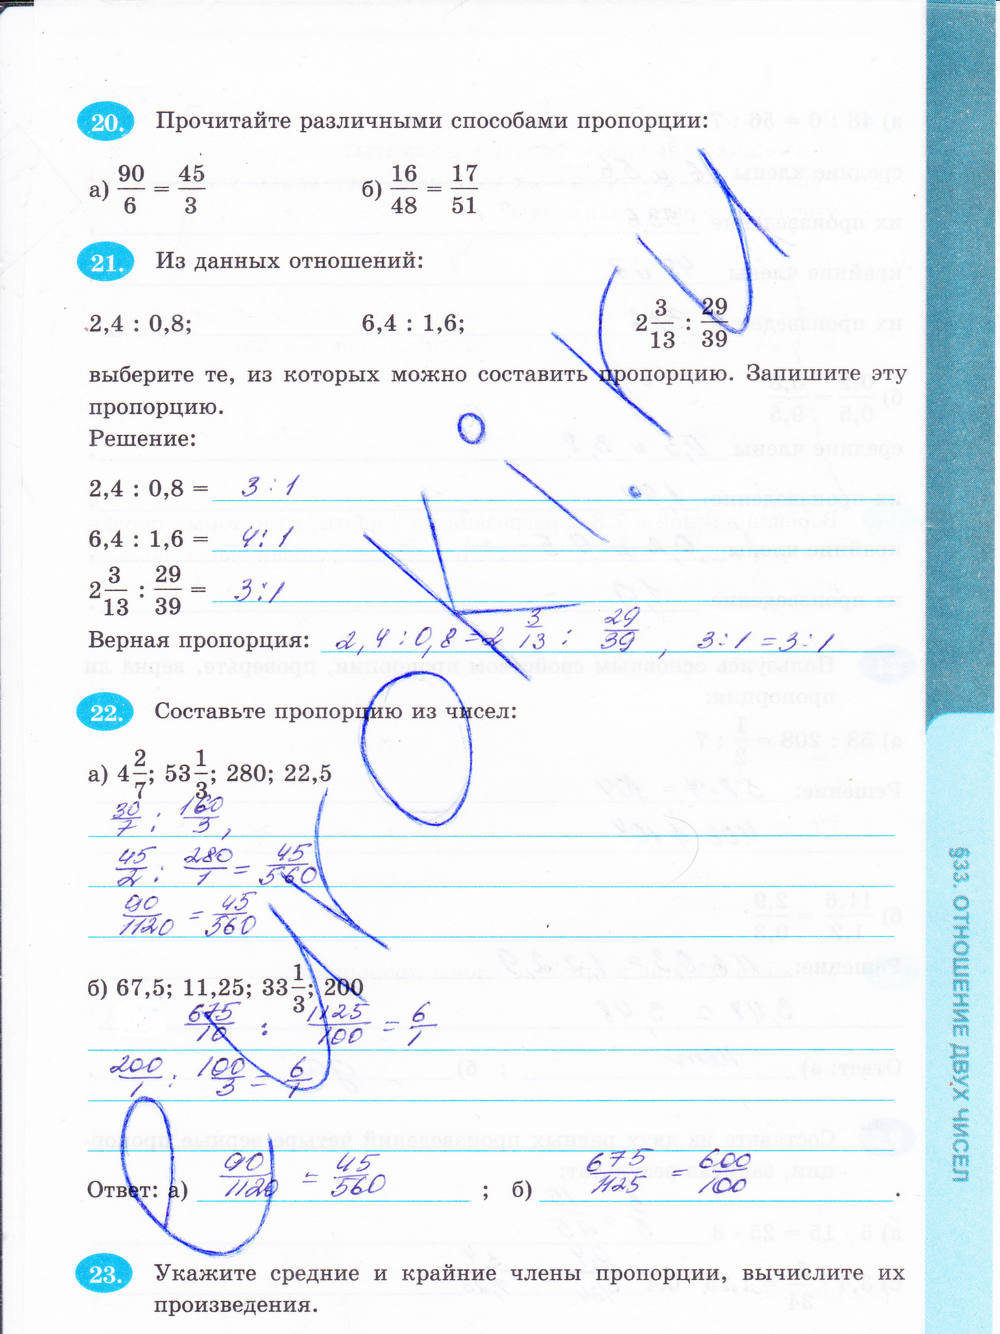 20. Прочитайте различными способами пропорции:
а) 90/6 = 45/3 б) 16/48 = 17/51
21. Из данных отношений:
2,4 : 0,8; 6,4 : 1,6; 2 3/13 : 29/39
выберите те, из которых можно составить пропорцию. Запишите эту
пропорцию.
Решение:
2,4 : 0,8 = 3 : 1
6,4 : 1,6 = 4 : 1
2 3/13 : 29/39 = 3 : 1
Верная пропорция: 2,4 : 0,8 = 2 3/13 : 29/39 , 3 : 1 = 3 : 1
22. Составьте пропорцию из чисел:
а) 4 2/7; 53 1/3; 280; 22,5
30/7 : 160/3 ,
45/2 : 280/1 = 45/560
90/1120 = 45/560
б) 67,5; 11,25; 33 1/3; 200
675/10 : 1125/100 = 6/1
200/1 : 100/3 = 6/1
Ответ: а) 90/1120 = 45/560 ; б) 675/1125 = 600/100 .
23. Укажите средние и крайние члены пропорции, вычислите их
произведения.
§33. ОТНОШЕНИЕ ДВУХ ЧИСЕЛ